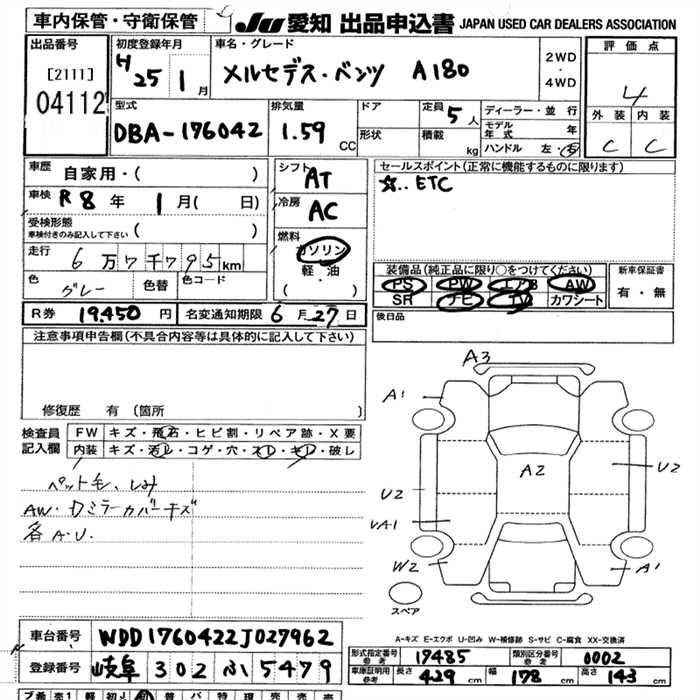 車内保管・守衛保管
JU 愛知 出品申込書 JAPAN USED CAR DEALERS ASSOCIATION
出品番号
[2111]
04112
初度登録年月
H 25 1月
車名・グレード
メルセデス・ベンツ A180
2WD
・
4WD
評価点
4
外装 内装
C C
型式
DBA-176042
排気量
1.59 CC
ドア
形状
定員 5人
積載 kg
ディーラー・並行
モデル年式 年
ハンドル 左・右
車歴 自家用・( )
車検 R8年 1月( 日)
受検形態
車検付きのみ記入して下さい ( )
走行 6万7千795km
色 グレー 色替 色コード
シフト AT
冷房 AC
燃料
ガソリン
軽・油
( )
セールスポイント(正常に機能するものに限ります)
☆.. ETC
装備品(純正品に限り○をつけてください)
PS PW エアB AW
SR ナビ TV カワシート
新車保証書
有・無
後日品
R券 19,450円 名変通知期限 6月27日
注意事項申告欄(不具合内容等は具体的に記入して下さい)
修復歴 有 (箇所 )
検査員
記入欄
FW キズ・飛石・ヒビ割・リペア跡・X要
内装 キズ・汚レ・コゲ・穴・スレ・キレ・破レ
ペット毛、しみ
AW・ドミラーカバーキズ
各A.U.
A3
A1
A2
U2
U2
UA1
W2
A1
スペア
A-キズ E-エクボ U-凹み W-補修跡 S-サビ C-腐食 XX-交換済
車台番号 WDD1760422J027962
登録番号 岐阜 302 ふ 5479
形式指定番号 参考 17485 類別区分番号 参考 0002
車庫証明用 参考 長さ 429cm 幅 178cm 高さ 143cm